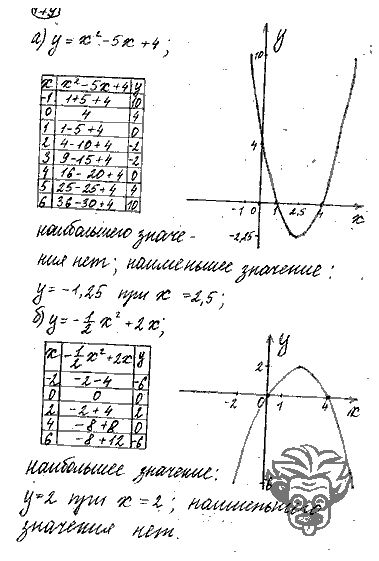 а) y = x² - 5x + 4;
x | x² - 5x + 4 | y
-1 | 1+5+4 | 10
0 | 4 | 4
1 | 1-5+4 | 0
2 | 4-10+4 | -2
3 | 9-15+4 | -2
4 | 16-20+4 | 0
5 | 25-25+4 | 4
6 | 36-30+4 | 10
y
10
4
-1 0 1 2,5 4 x
-2,25
наибольшего значе-
ния нет; наименьшее значение:
y = -1,25 при x = 2,5;
б) y = -1/2 x² + 2x;
x | -1/2 x² + 2x | y
-2 | -2-4 | -6
0 | 0 | 0
2 | -2+4 | 2
4 | -8+8 | 0
6 | -8+12 | -6
y
2
-2 0 1 4 x
наибольшее значение:
y=2 при x=2; наименьшего
значения нет.